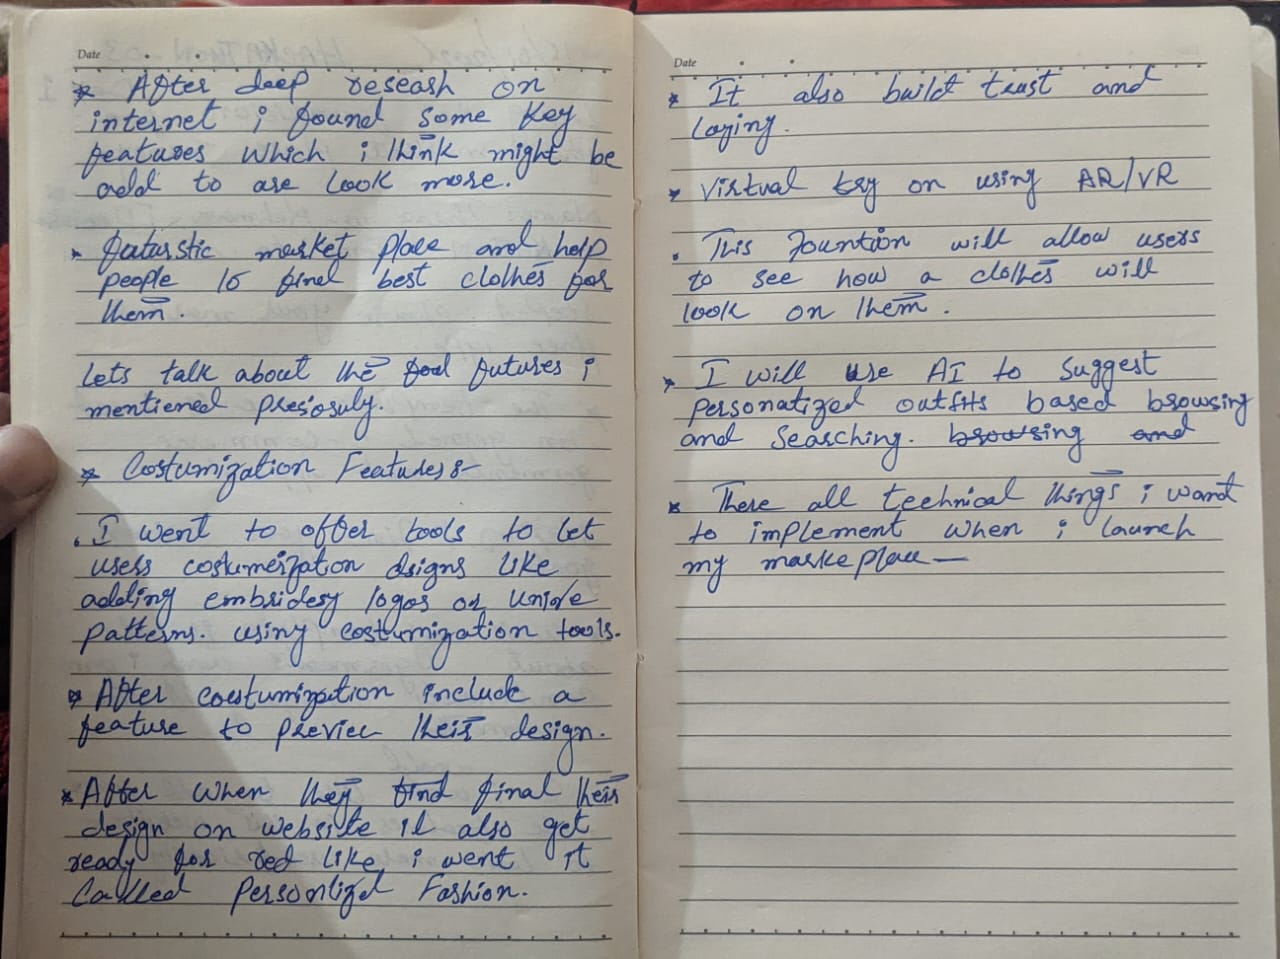 * After deep reseash on
internet i found some key
features which i think might be
add to are look more.
futurstic market place and help
people to find best clothes for
them.
Lets talk about the futures i
mentiened presosuly.
* Costumization Features:-
. I went to offer tools to let
users costumerzation dsigns like
adding embridesy logos or uniqe
patterns. using costumization tools.
* After coustumization include a
feature to previec their design.
* After when they find final their
design on website it also get
ready for red like i went it
Called Personlized Fashion.
* It also build trust and
* Virtual try on using AR/VR
. This fountion will allow users
to see how a clothes will
look on them.
* I will use AI to suggest
personatized outfits based browsing
and searching. browsing and
* These all technical things i want
to implement when i launch
my markeplace —